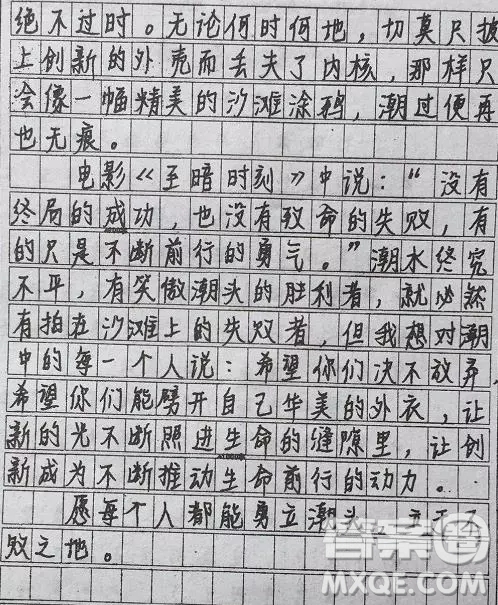 绝不过时。无论何时何地,切莫只披
上创新的外壳而丢失了内核,那样只
会像一幅精美的沙滩涂鸦,潮过便再
也无痕。
电影《至暗时刻》中说:“没有
终局的成功,也没有致命的失败,有
的只是不断前行的勇气。”潮水终究
不平,有笑傲潮头的胜利者,就必然
有拍在沙滩上的失败者,但我想对潮
中的每一个人说:希望你们决不放弃,
希望你们能劈开自己华美的外衣,让
新的光不断照进生命的缝隙里,让创
新成为不断推动生命前行的动力。
愿每个人都能勇立潮头,立于不
败之地。
答案圈
MXQE.COM